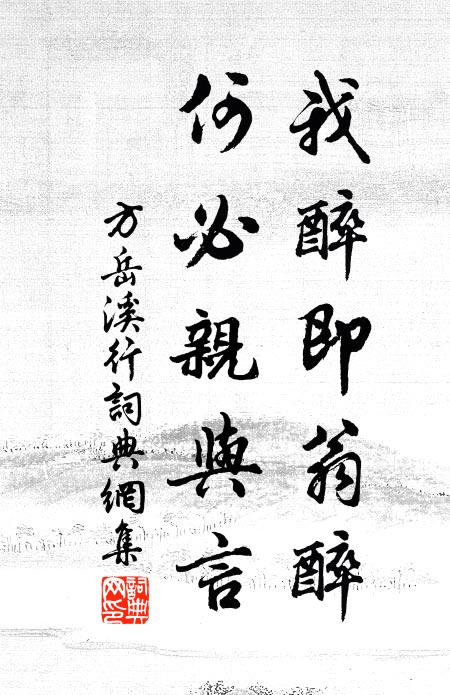 我醉即翁醉
何必親與言
方岳溪行詞典網集
詞典網印